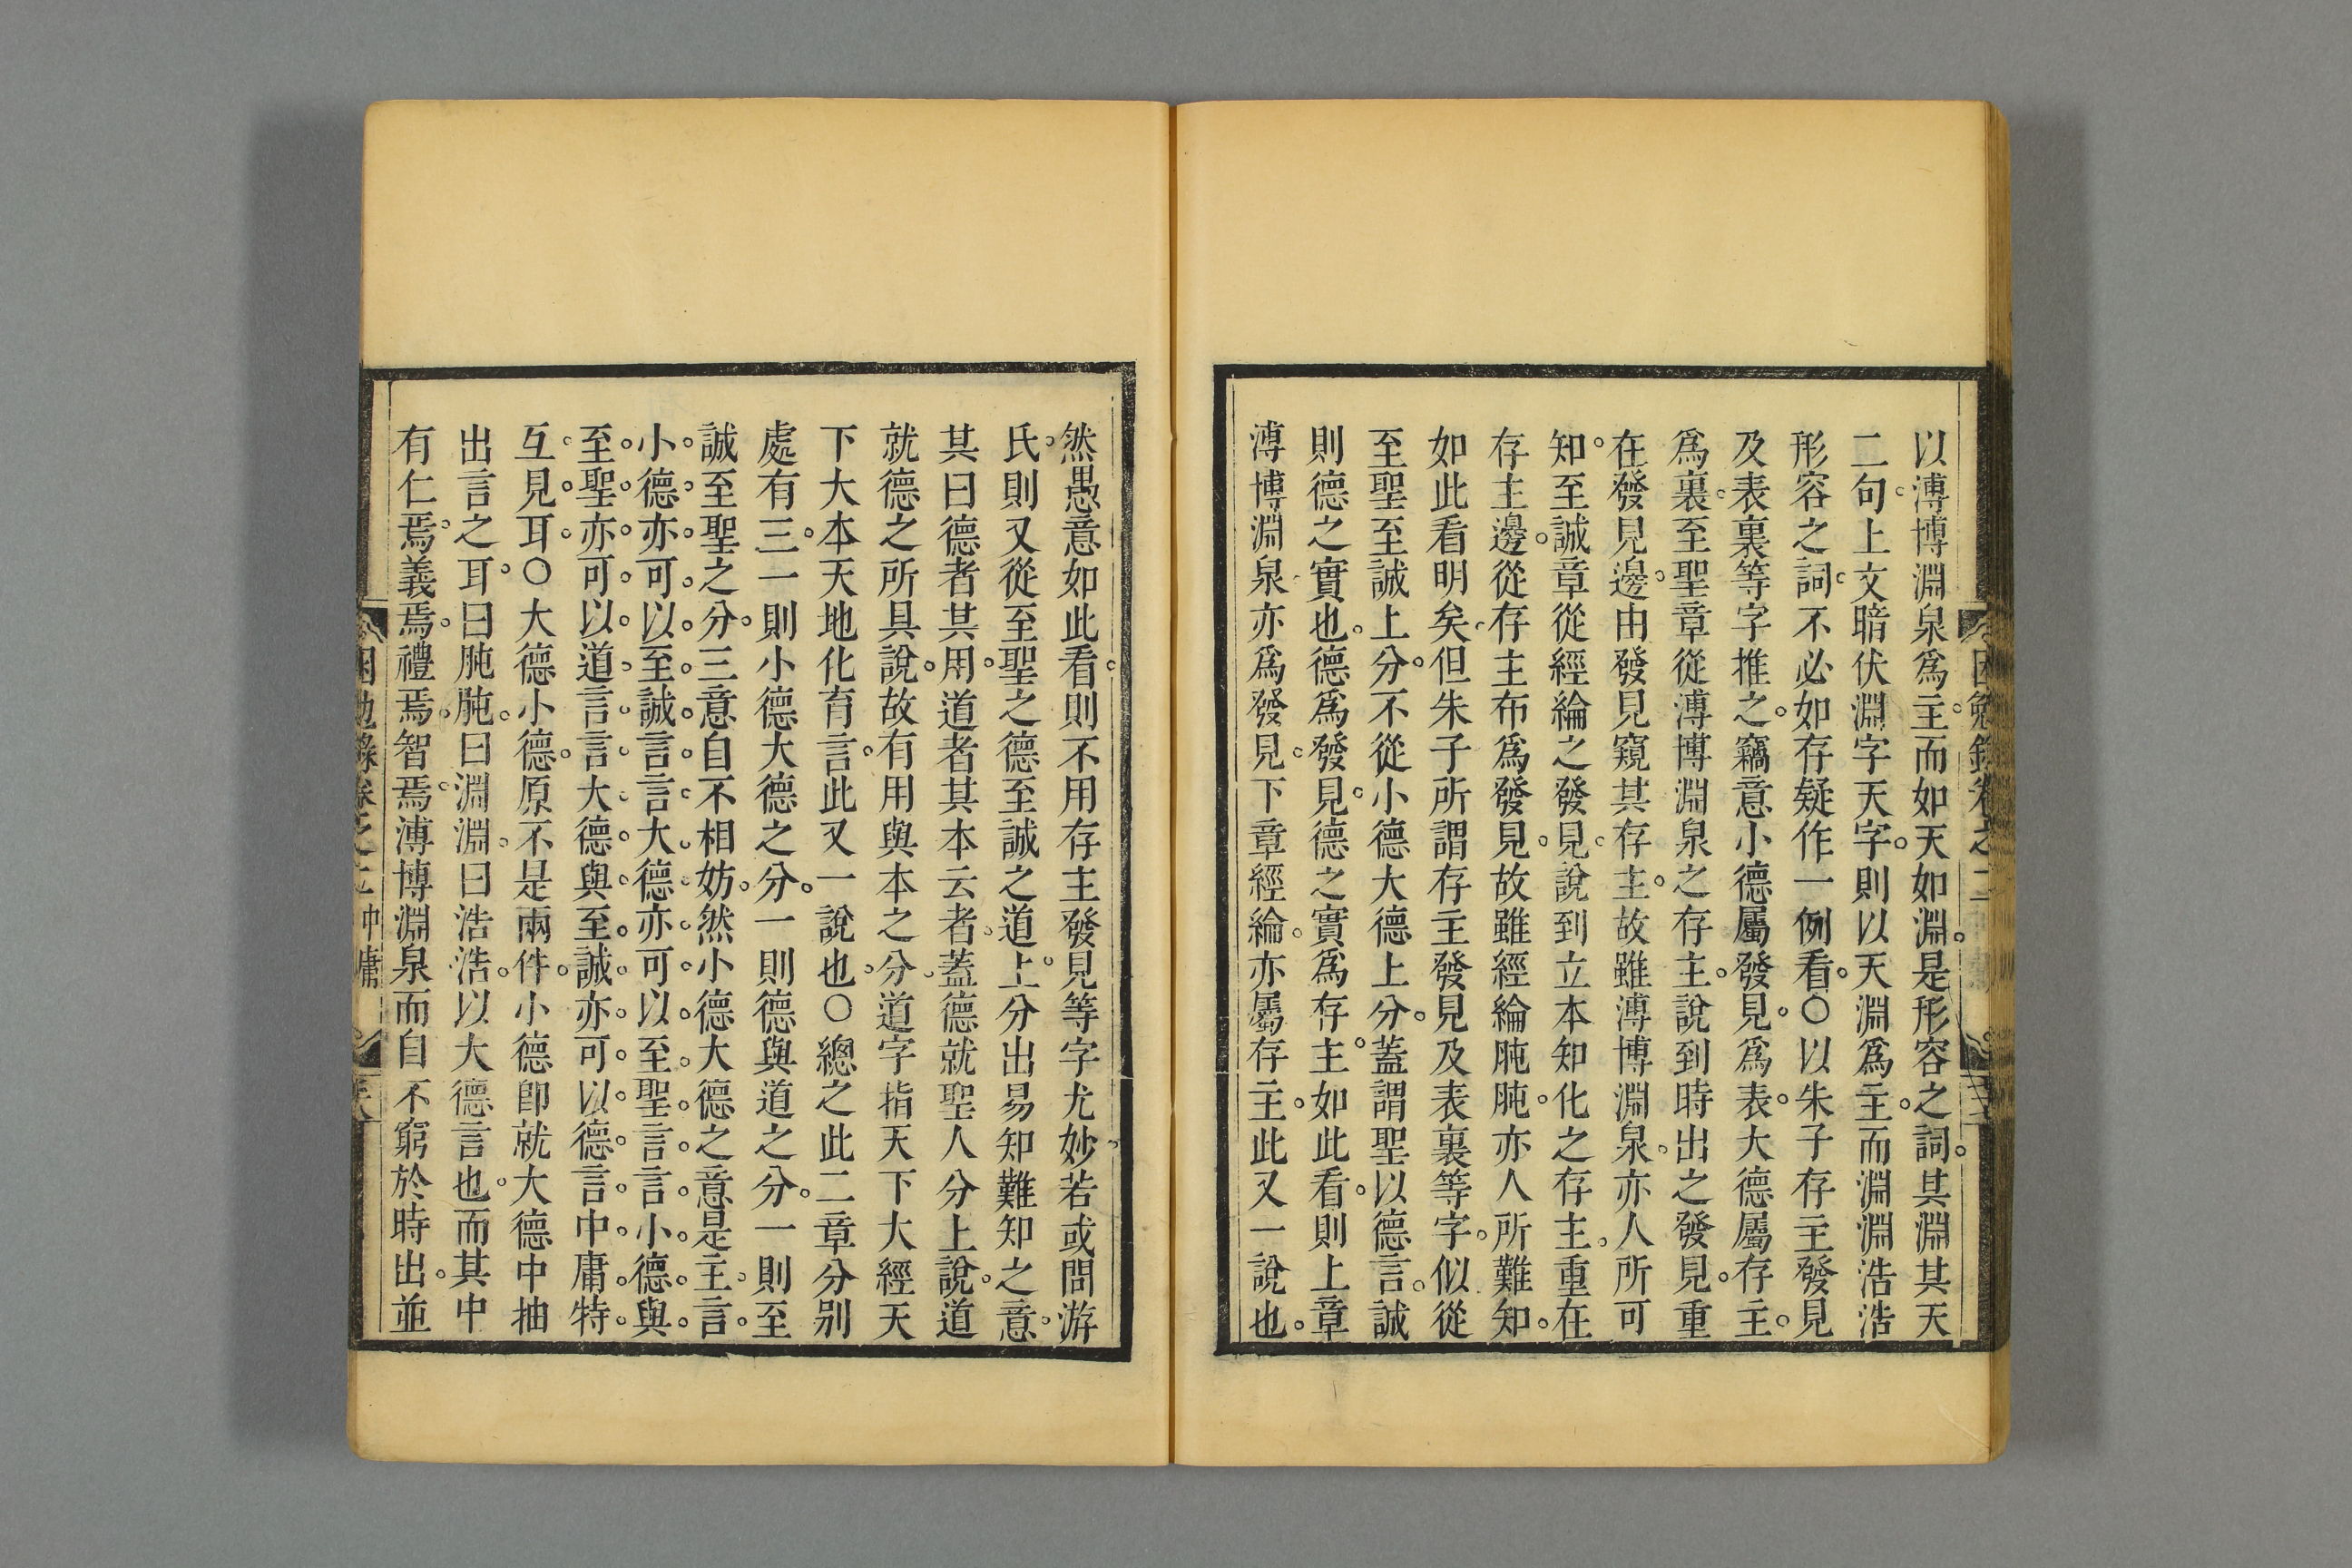 以溥博淵泉爲主而如天如淵是形容之詞其淵其天
二句上文暗伏淵字天字則以天淵爲主而淵淵浩浩
形容之詞不必如存疑作一例看○以朱子存主發見
及表裏等字推之竊意小德屬發見爲表大德屬存主
爲裏至聖章從溥博淵泉之存主說到時出之發見重
在發見邊由發見窺其存主故雖溥博淵泉亦人所可
知至誠章從經綸之發見說到立本知化之存主重在
存主邊從存主布爲發見故雖經綸肫肫亦人所難知
如此看明矣但朱子所謂存主發見及表裏等字似從
至聖至誠上分不從小德大德上分蓋謂聖以德言誠
則德之實也德爲發見德之實爲存主如此看則上章
溥博淵泉亦爲發見下章經綸亦屬存主此又一說也
然愚意如此看則不用存主發見等字尤妙若或問游
氏則又從至聖之德至誠之道上分出易知難知之意
其曰德者其用道者其本云者蓋德就聖人分上說道
就德之所具說故有用與本之分道字指天下大經天
下大本天地化育言此又一說也○總之此二章分別
處有三一則小德大德之分一則德與道之分一則至
誠至聖之分三意自不相妨然小德大德之意是主言
小德亦可以至誠言言大德亦可以至聖言言小德與
至聖亦可以道言言大德與至誠亦可以德言中庸特
互見耳○大德小德原不是兩件小德卽就大德中抽
出言之耳曰肫肫曰淵淵曰浩浩以大德言也而其中
有仁焉義焉禮焉智焉溥博淵泉而自不窮於時出並